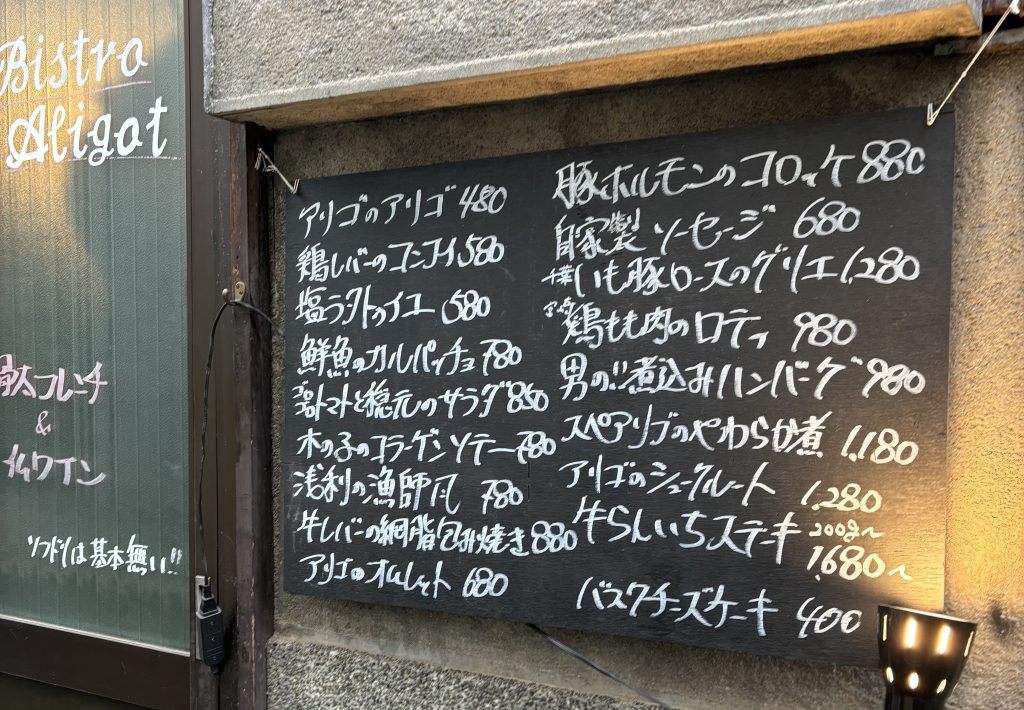 Bistro
Aligot
骨太フレンチ
&
仏ワイン
ソフドリは基本無い!!
アリゴのアリゴ 480
鶏レバーのコンフィ 580
塩ラタトゥイユ 580
鮮魚のカルパッチョ 780
トマトと穂元のサラダ 880
木の子のコラーゲンソテー 780
浅利の漁師風 780
牛レバーの網脂包み焼き 880
アリゴのオムレット 680
豚ホルモンのコロッケ 880
自家製ソーセージ 680
千葉いも豚ロースのグリエ 1,280
鶏もも肉のロティ 980
男の!!煮込みハンバーグ 980
スペアリブのやわらか煮 1,180
アリゴのシュークルート 1,280
牛らんいちステーキ 200g〜
1,680〜
バスクチーズケーキ 400